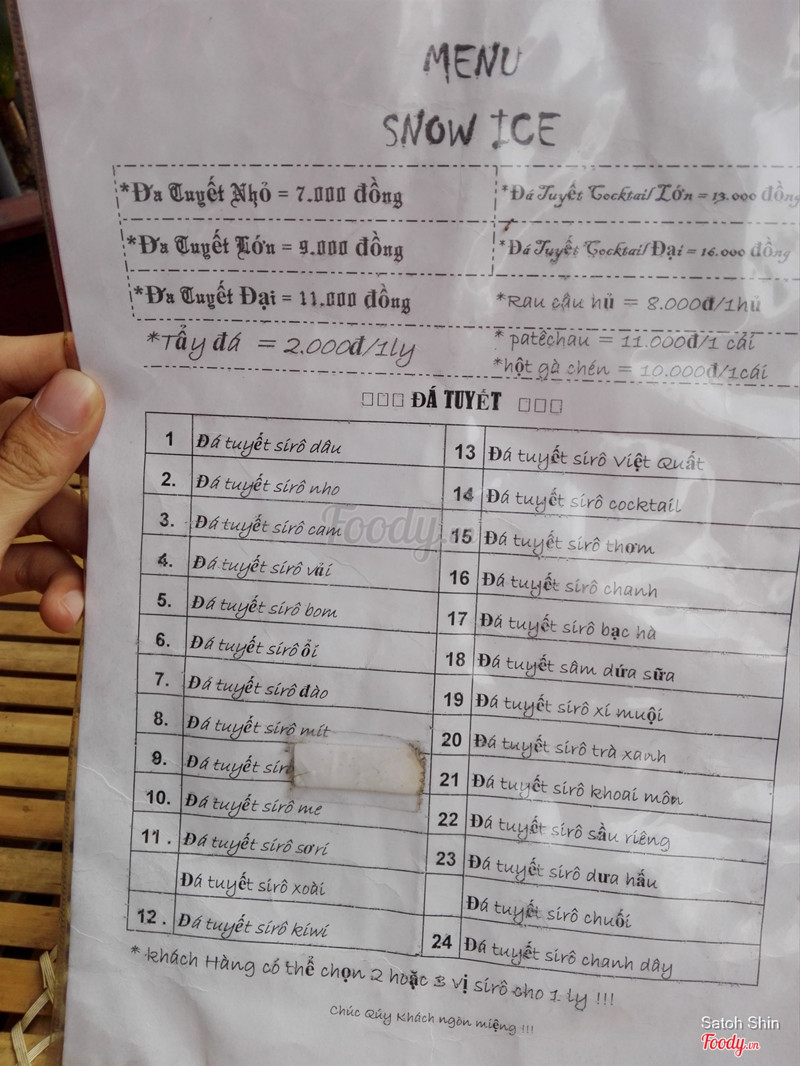 MENU
SNOW ICE
*Đá Tuyết Nhỏ = 7.000 đồng
*Đá Tuyết Cocktail Lớn = 13.000 đồng
*Đá Tuyết Lớn = 9.000 đồng
*Đá Tuyết Cocktail Đại = 16.000 đồng
*Đá Tuyết Đại = 11.000 đồng
*Rau câu hủ = 8.000đ/1hủ
*Tẩy đá = 2.000đ/1ly
* patêchau = 11.000đ/1 cái
*hột gà chén = 10.000đ/1cái
ĐÁ TUYẾT
1 Đá tuyết sirô dâu
2. Đá tuyết sirô nho
3. Đá tuyết sirô cam
4. Đá tuyết sirô vải
5. Đá tuyết sirô bom
6. Đá tuyết sirô ổi
7. Đá tuyết sirô đào
8. Đá tuyết sirô mít
9. Đá tuyết
10. Đá tuyết sirô me
11. Đá tuyết sirô sơri
Đá tuyết sirô xoài
12. Đá tuyết sirô kiwi
13 Đá tuyết sirô Việt Quất
14 Đá tuyết sirô cocktail
15 Đá tuyết sirô thơm
16 Đá tuyết sirô chanh
17 Đá tuyết sirô bạc hà
18 Đá tuyết sâm dứa sữa
19 Đá tuyết sirô xí muội
20 Đá tuyết sirô trà xanh
21 Đá tuyết sirô khoai môn
22 Đá tuyết sirô sầu riêng
23 Đá tuyết sirô dưa hấu
Đá tuyết sirô chuối
24 Đá tuyết sirô chanh dây
* khách Hàng có thể chọn 2 hoặc 3 vị sirô cho 1 ly !!!
Chúc Qúy Khách ngon miệng !!!
Foody.vn
Satoh Shin
Foody.vn